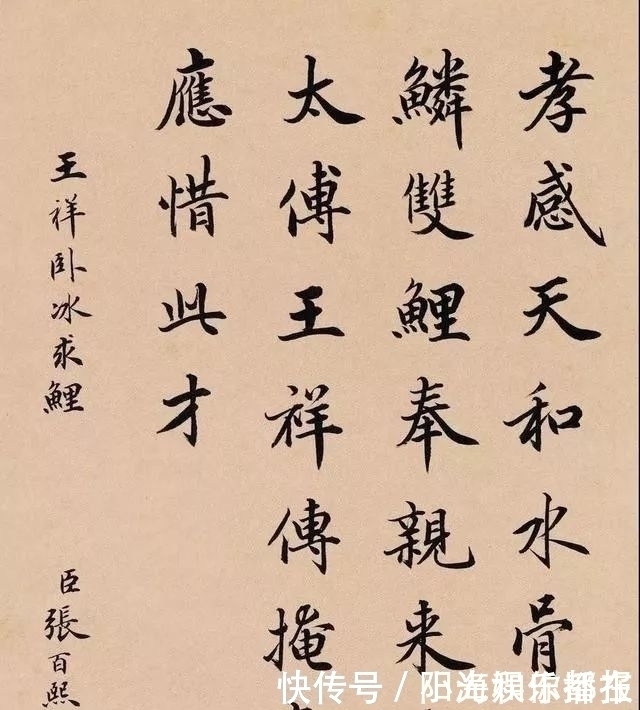 孝感天和水骨
鱗雙鯉奉親来
太傅王祥傳掩
應惜此才
王祥卧冰求鯉
臣張百熙
快传号／阳海娱乐播报